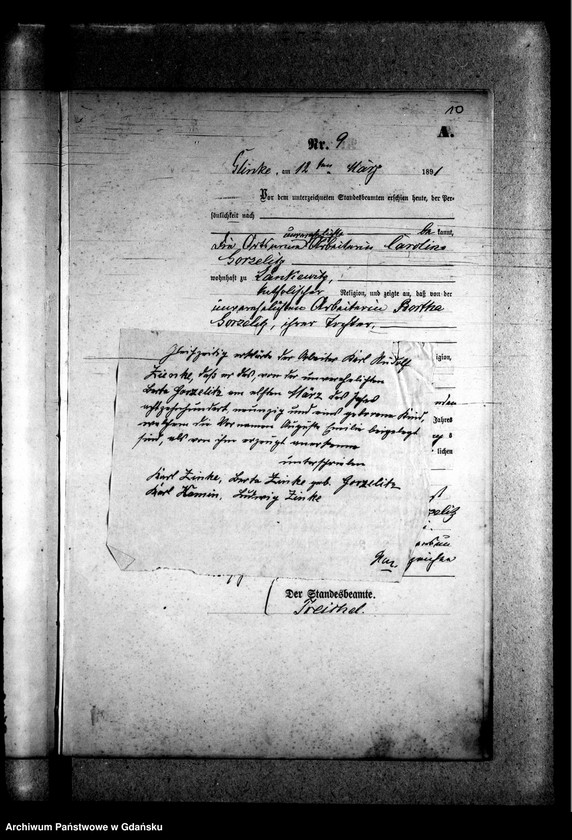 10
A.
Nr. 9
Glinke, am 12 ten März 1891
Vor dem unterzeichneten Standesbeamten erschien heute, der Per-
sönlichkeit nach
unverehelichte be kannt,
die Ortsarme Arbeiterin Caroline
Gorzelitz
wohnhaft zu Lankewitz,
katholischer Religion, und zeigte an, daß von der
unverehelichten Arbeiterin Bertha
Gorzelitz, ihrer Tochter,
Gleichzeitig erklärte der Arbeiter Karl Rudolf
Zinke, daß er das von der unverehelichten
Berta Gorzelitz am elften März des Jahres
achtzehnhundert neunzig und eins geborene Kind,
welchem die Vornamen Auguste Emilie beigelegt
sind, als von ihm erzeugt anerkenne
unterschrieben
Karl Zinke, Berta Zinke geb. Gorzelitz
Karl Kamin, Ludwig Zinke
igion,
Jahres
lichen
zelitz
Der Standesbeamte.
Treichel.
Archiwum Państwowe w Gdańsku